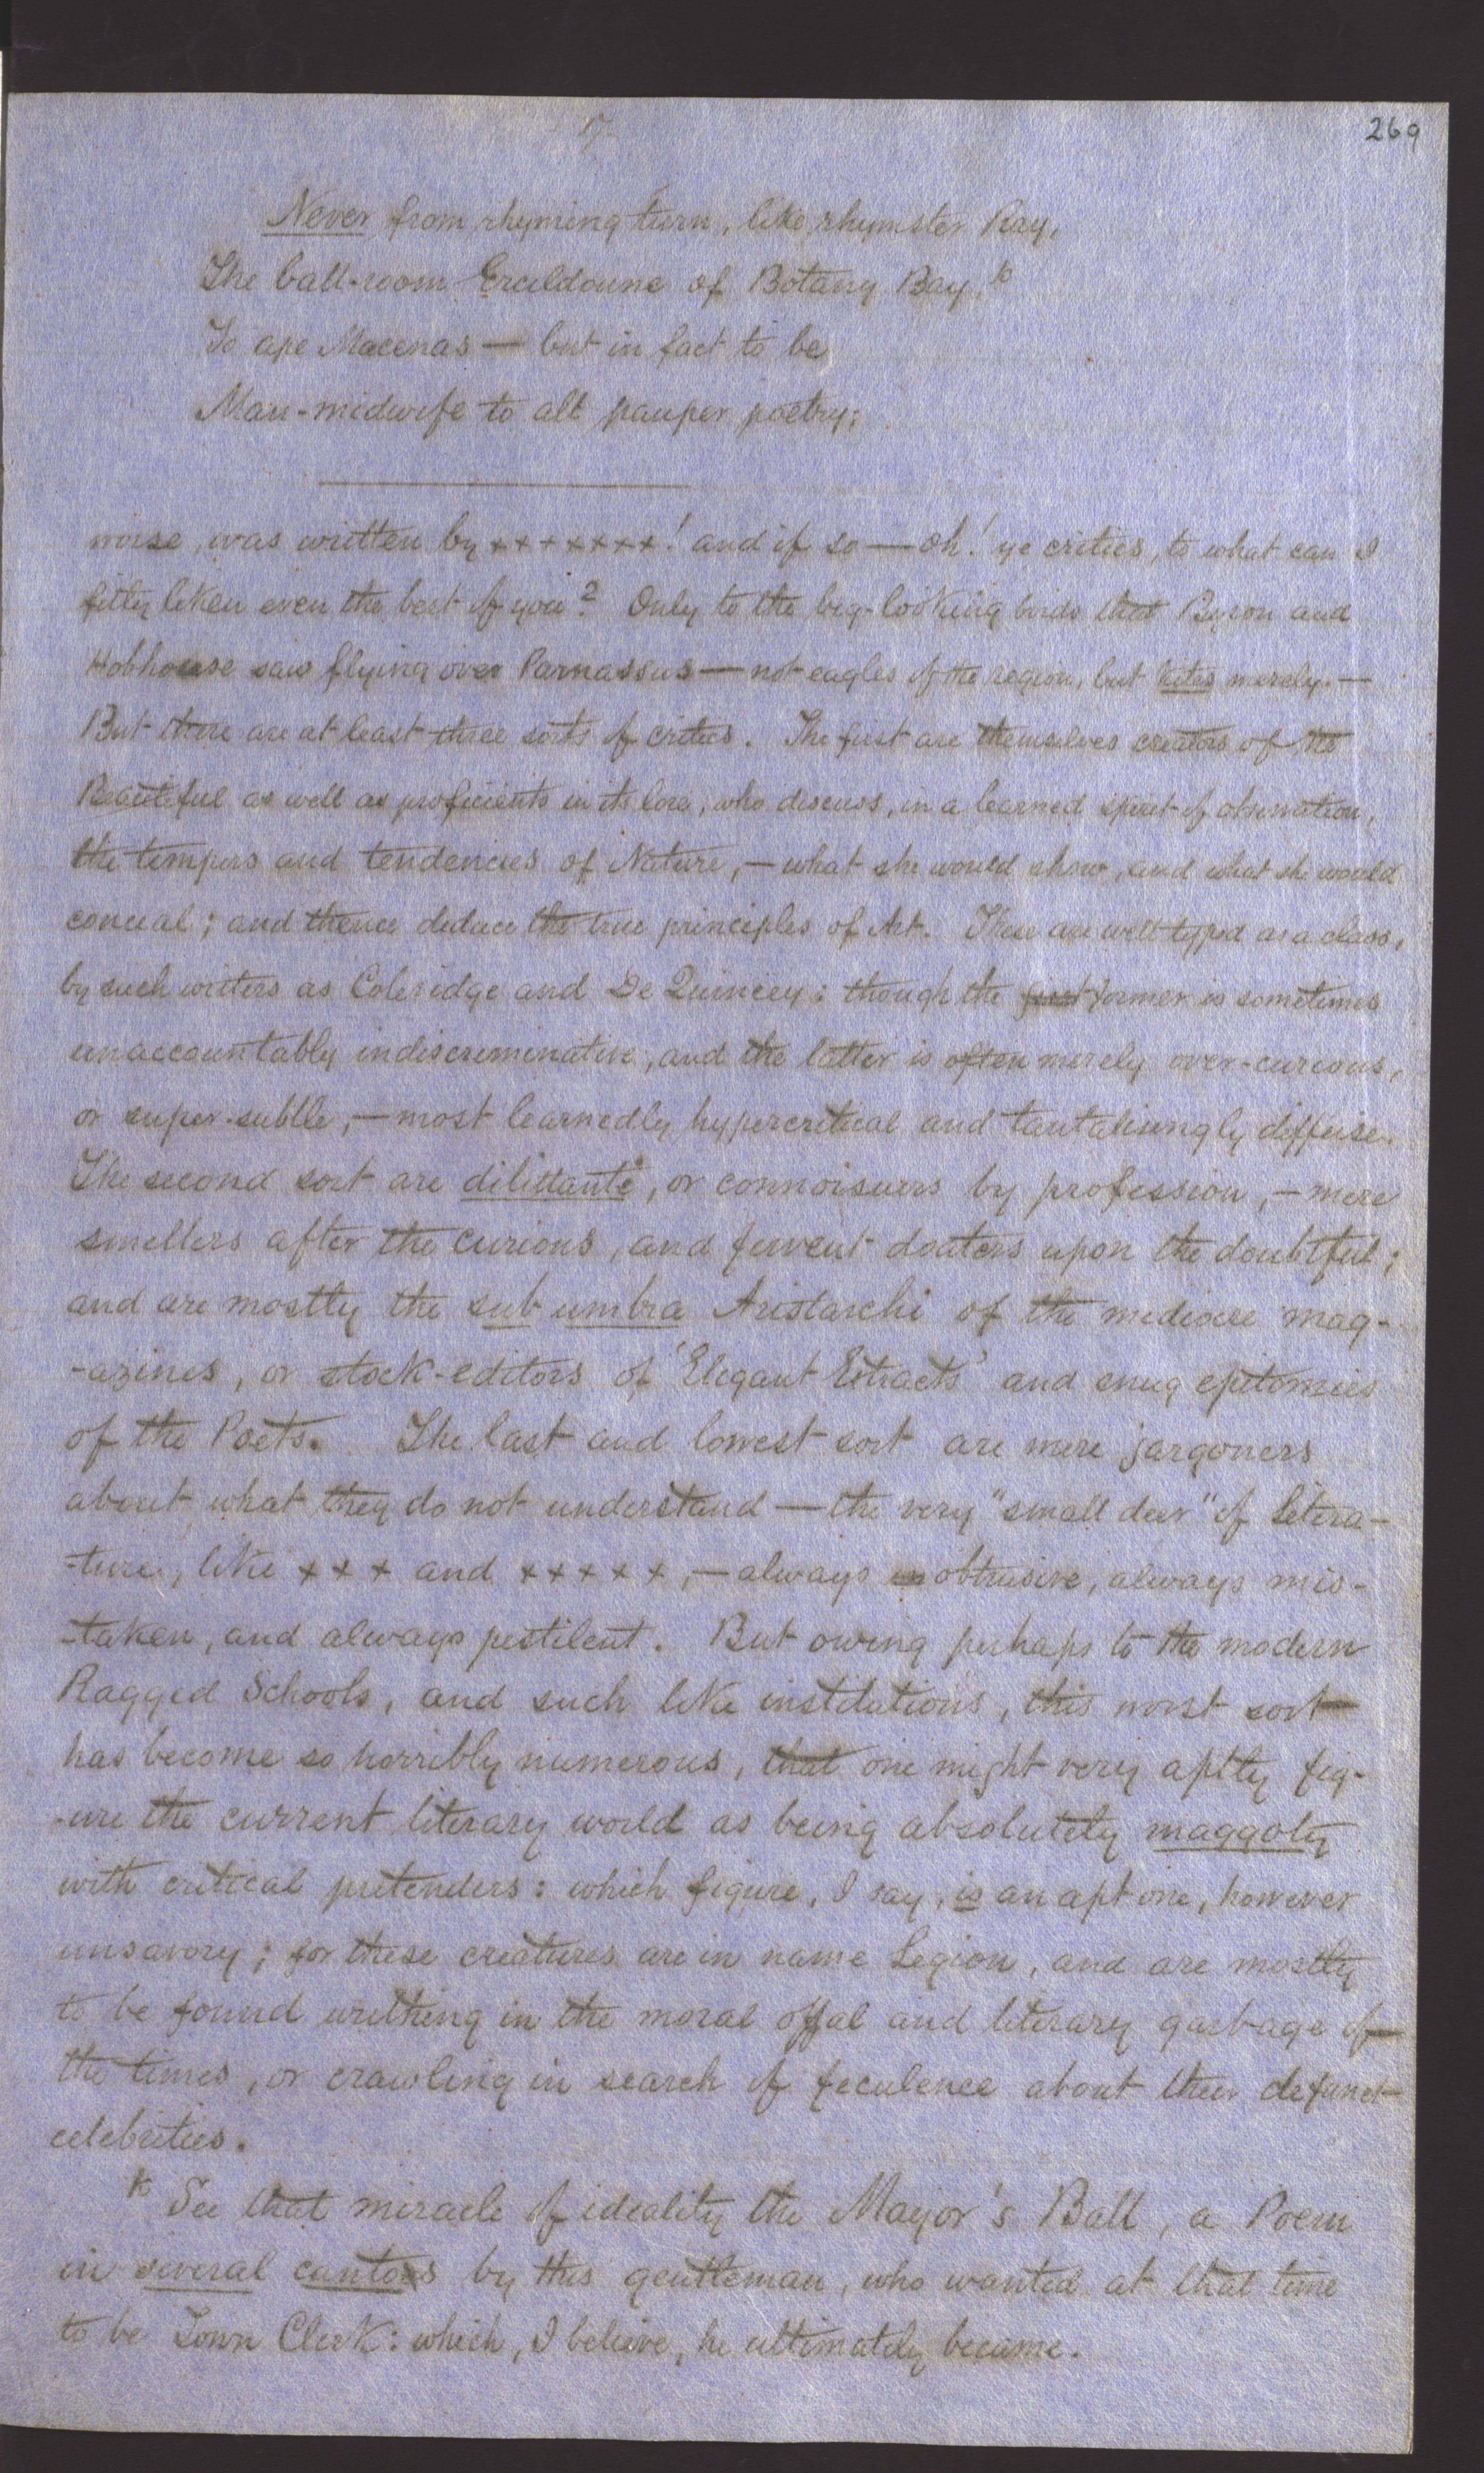 17
269
Never from rhyming turn, like rhymster Ray,
The ball-room Erceldoune of Botany Bay,*
To ape Macenas — but in fact to be
Man-midwife to all pauper poetry;
worse, was written by *******! and if so — Oh! ye critics, to what can I
fitly liken even the best of you? Only to the big-looking birds that Byron and
Hobhouse saw flying over Parnassus — not eagles of the region, but kites merely. —
But there are at least three sorts of critics. The first are themselves creators of the
Beautiful as well as proficients in its lore, who discuss, in a learned spirit of observation,
the tempers and tendencies of Nature, — what she would show, and what she would
conceal; and thence deduce the true principles of Art. These are well typed as a class,
by such writers as Coleridge and De Quincey: though the first former is sometimes
unaccountably indiscriminative, and the latter is often merely over-curious,
or super-subtle, — most learnedly hypercritical and tantalisingly diffuse.
The second sort are dilittante, or connoisuers by profession, — mere
smellers after the curious, and fervent doaters upon the doubtful;
and are mostly the sub umbra Aristarchi of the mediocre mag-
-azines, or stock-editors of 'Elegant Extracts' and snug epitomies
of the Poets. The last and lowest sort are mere jargoners
about what they do not understand — the very "small deer" of Litera-
-ture, like *** and *****, — always obtrusive, always mis-
-taken, and always pestilent. But owing perhaps to the modern
Ragged Schools, and such like institutions, this worst sort
has become so horribly numerous, that one might very aptly fig-
-ure the current literary world as being absolutely maggoty
with critical pretenders: which figure, I say, is an apt one, however
unsavory; for these creatures are in name Legion, and are mostly
to be found writhing in the moral offal and literary garbage of
the times, or crawling in search of feculence about their defunct
celebrities.
* See that miracle of ideality the Mayor's Ball, a Poem
in several cantos by this gentleman, who wanted at that time
to be Town Clerk: which, I believe, he ultimately became.